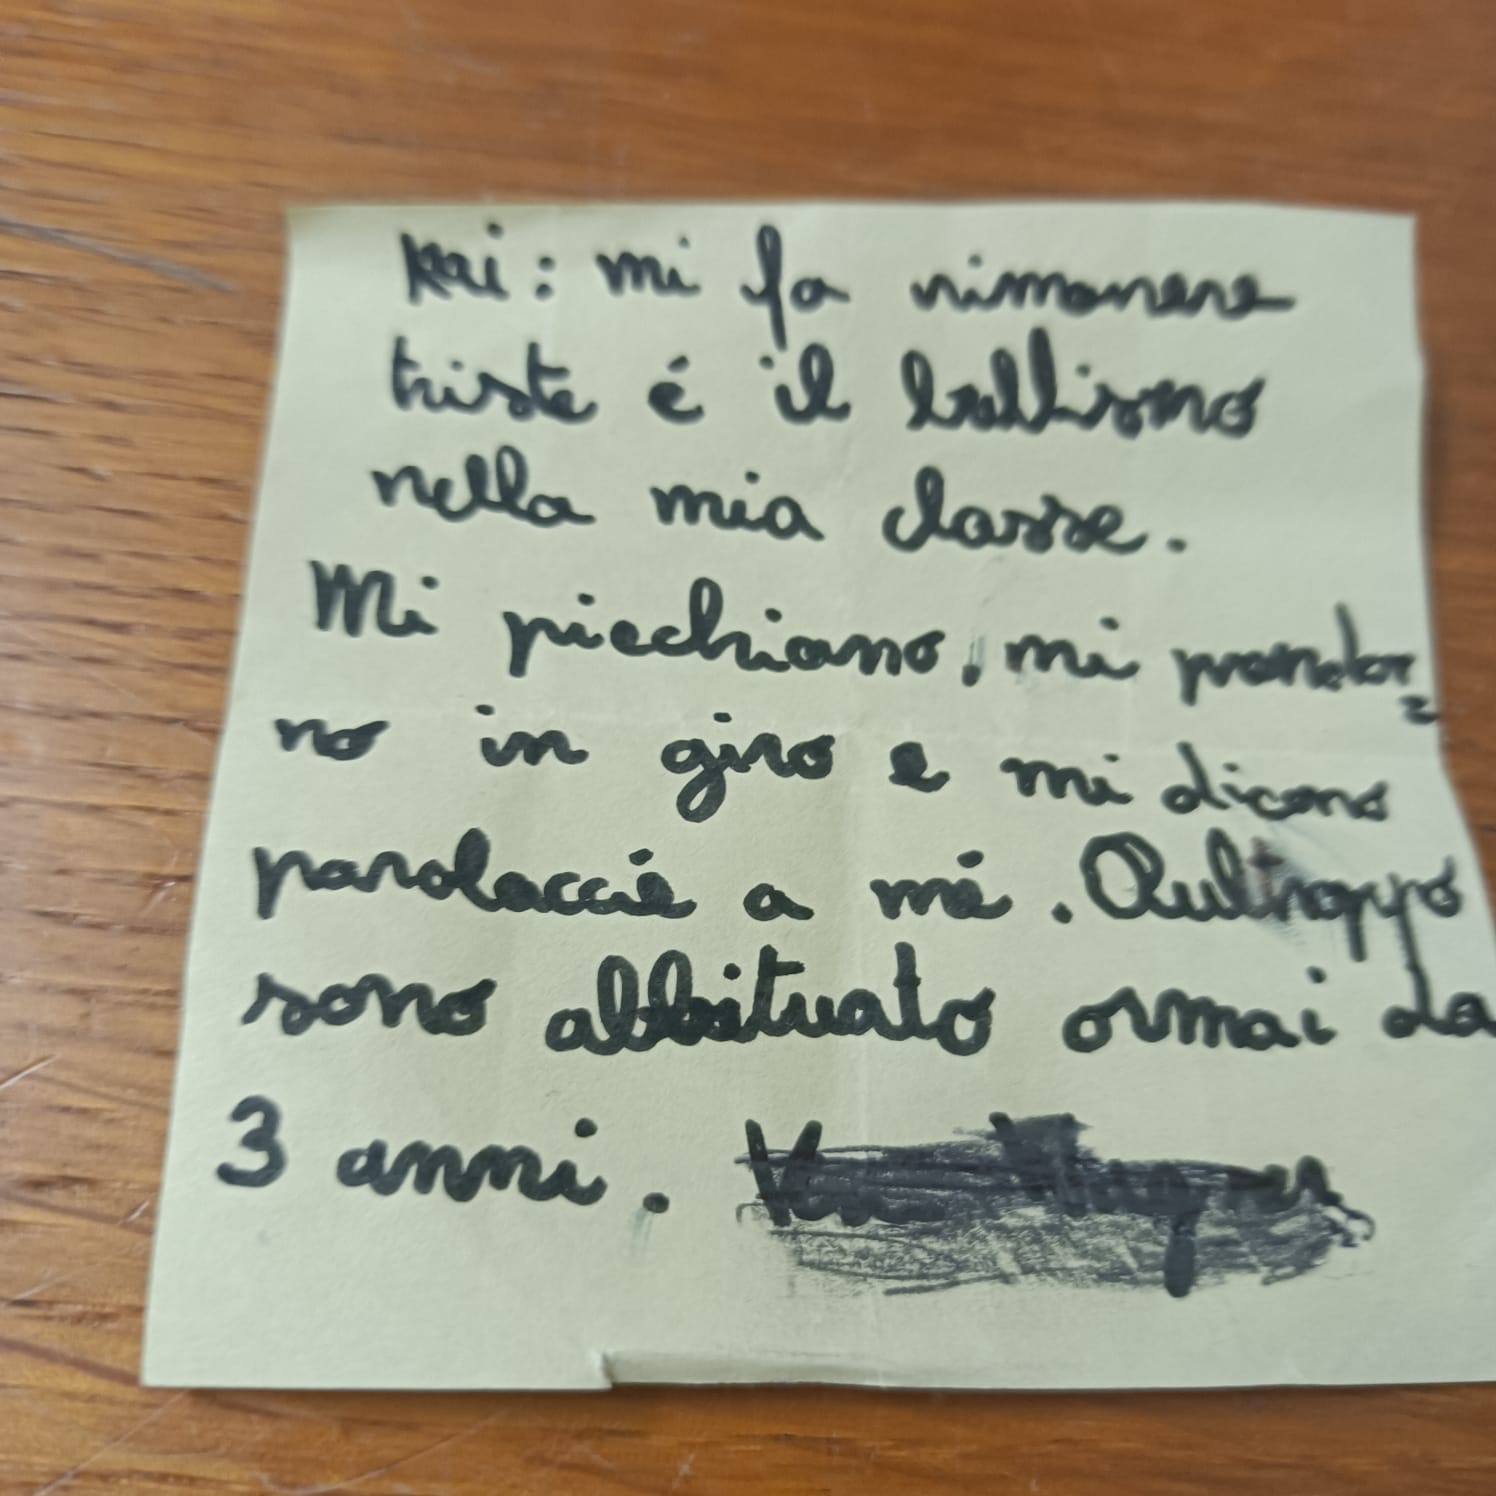 Kai: mi fa rimanere
triste é il bullismo
nella mia classe.
Mi picchiano, mi prendo=
no in giro e mi dicono
parolaccie a me. Pultroppo
sono abbituato ormai da
3 anni.